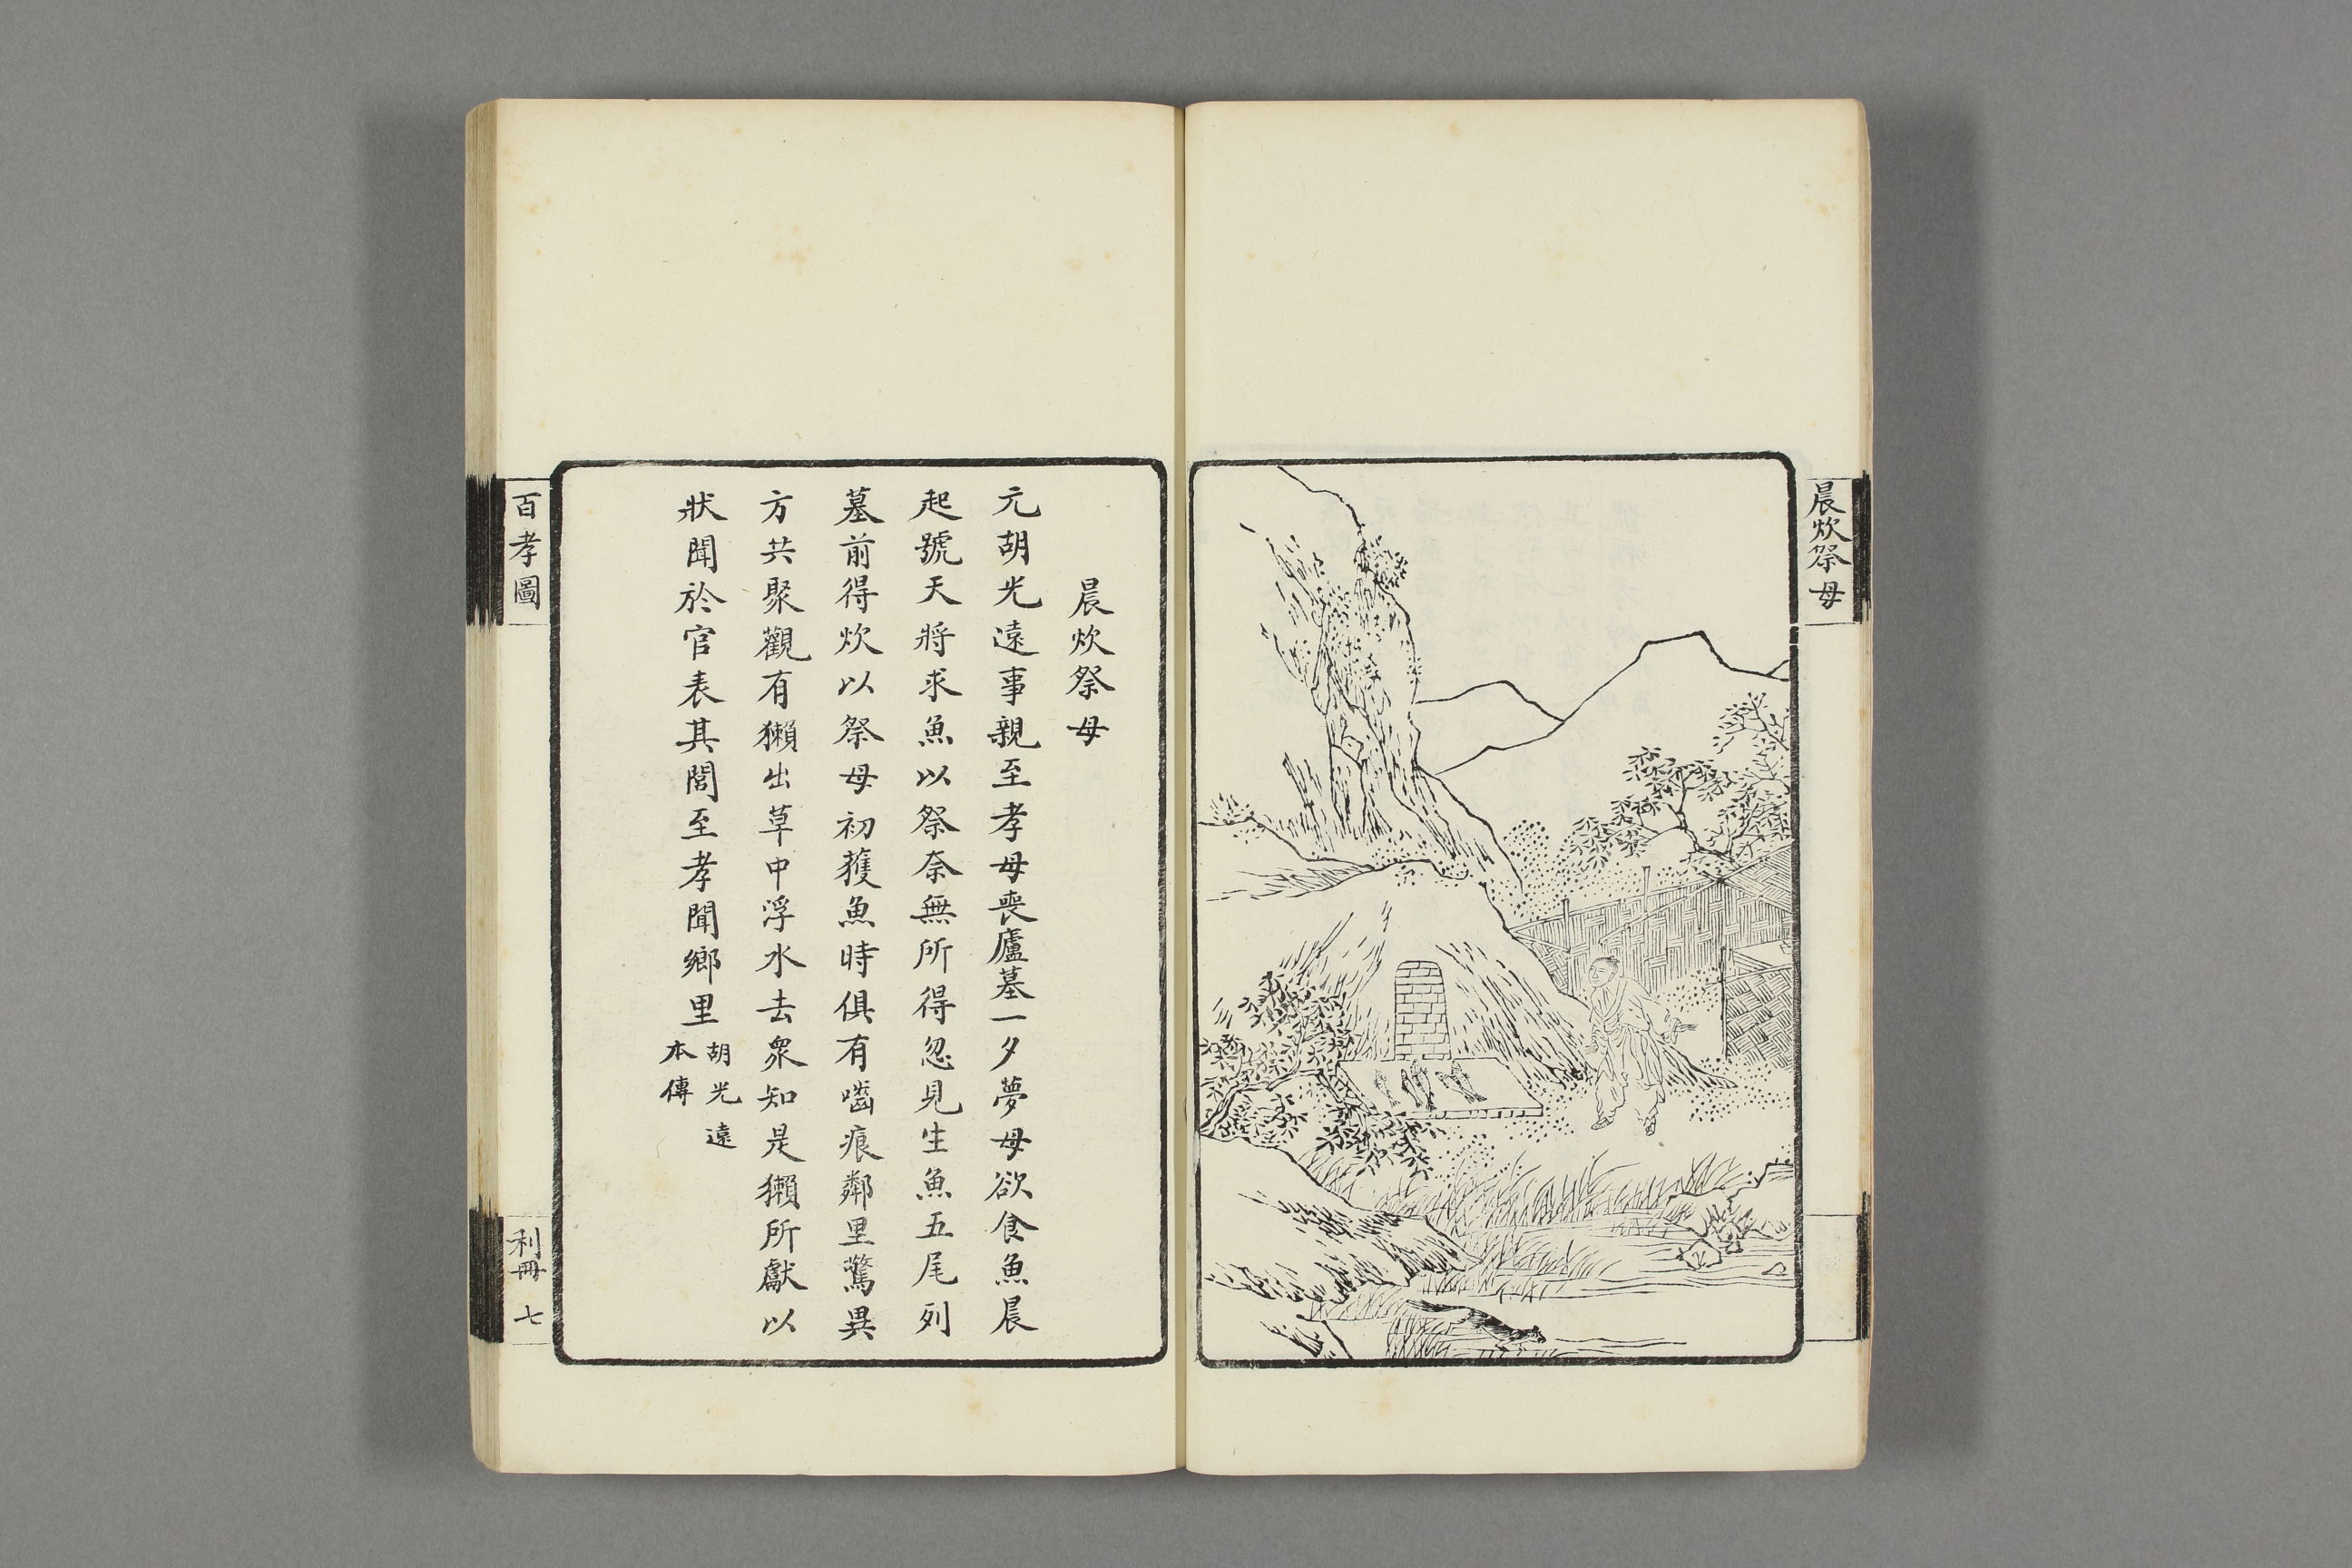 晨炊祭母
晨炊祭母
元胡光遠事親至孝母喪廬墓一夕夢母欲食魚晨
起號天將求魚以祭奈無所得忽見生魚五尾列
墓前得炊以祭母初獲魚時俱有嚙痕鄰里驚異
方共聚觀有獺出草中浮水去衆知是獺所獻以
狀聞於官表其閭至孝聞鄉里
胡光遠
本傳
百孝圖
利冊 七